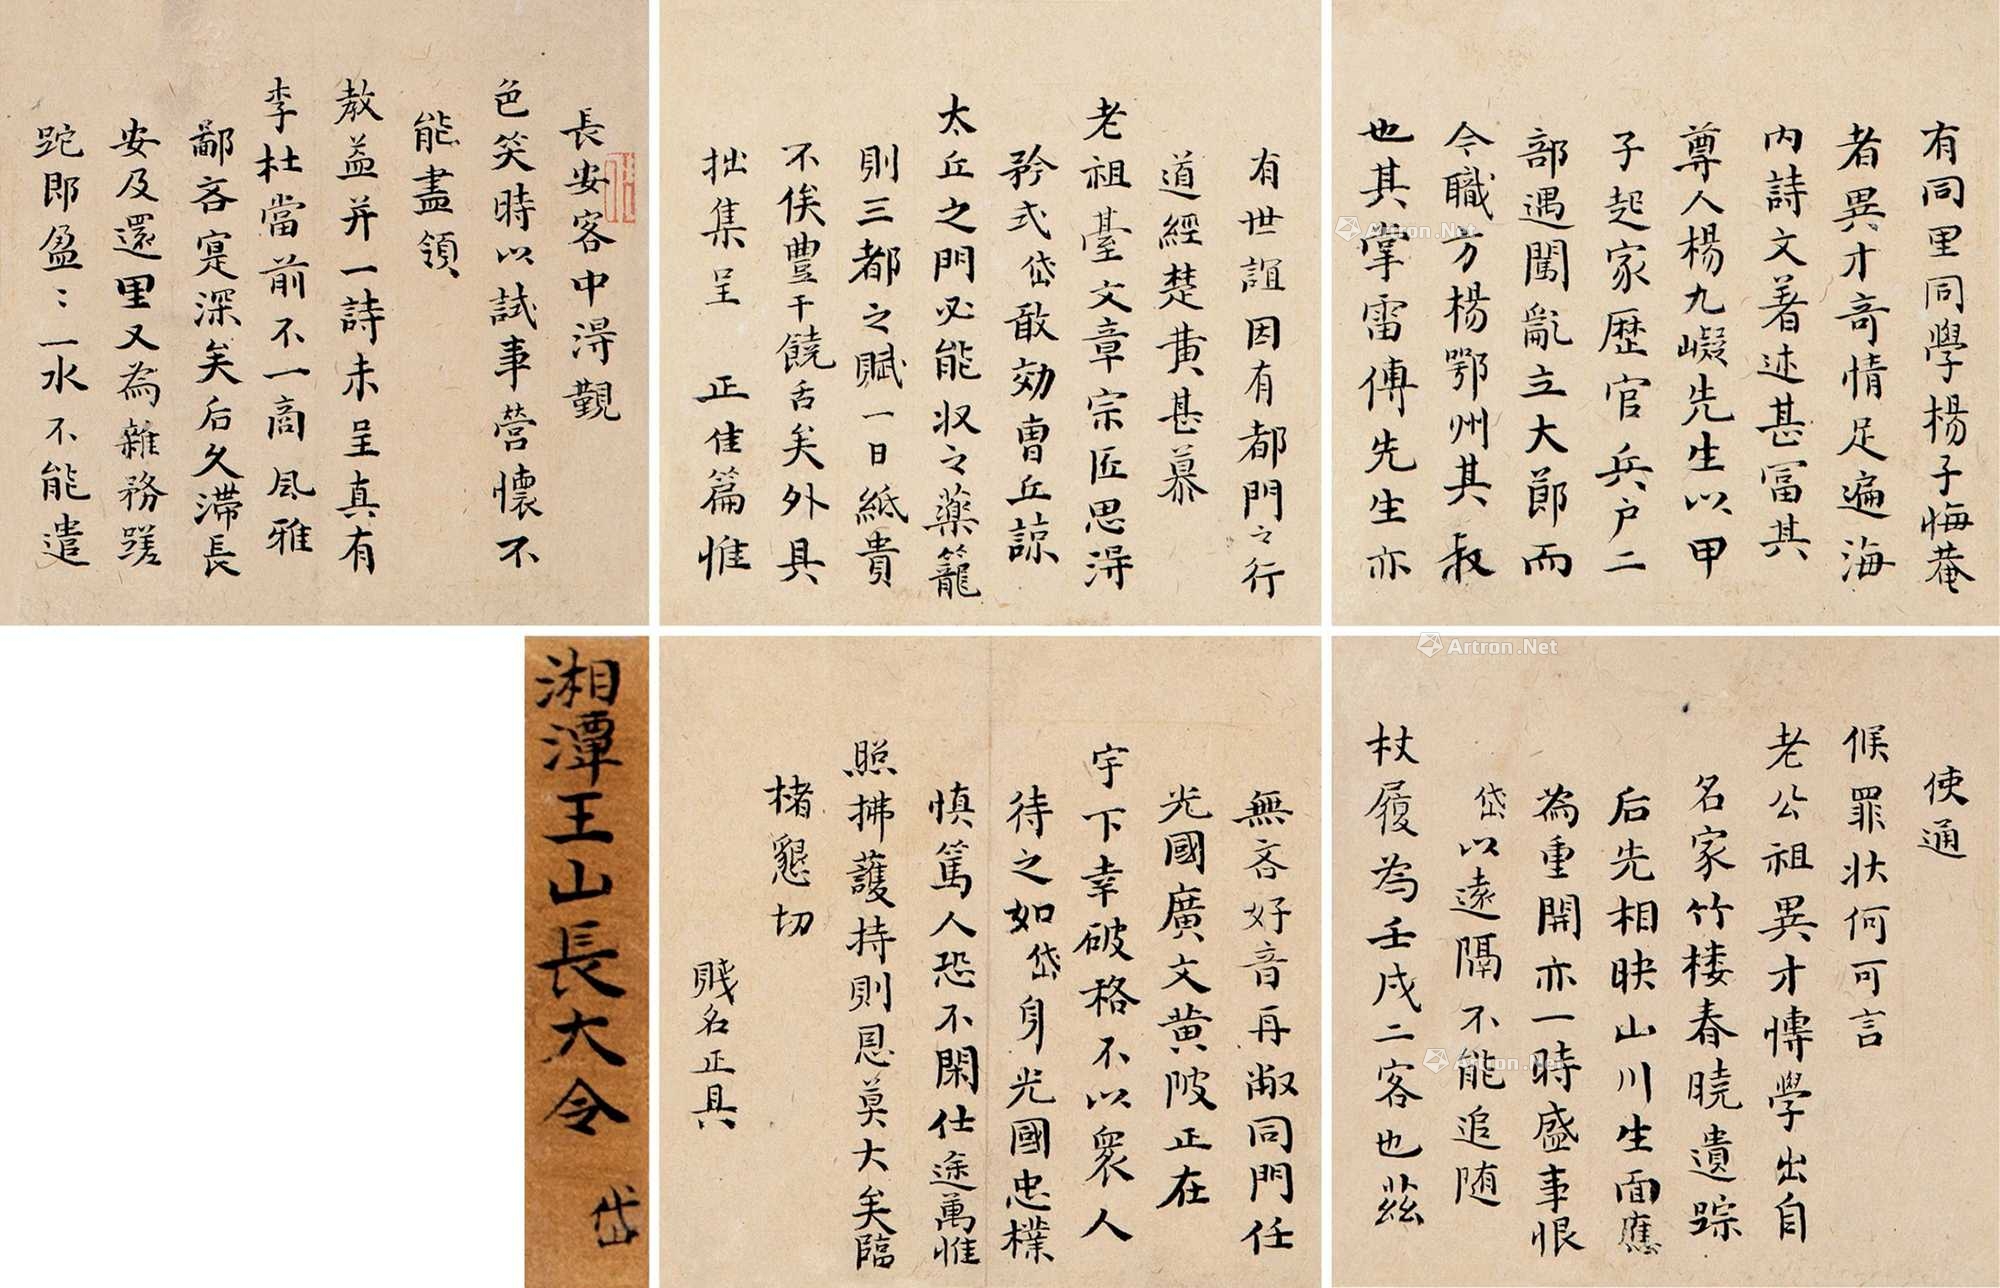 有同里同學楊子悔菴
者異才奇情足遍海
内詩文著述甚冨其
尊人楊九嶷先生以甲
子起家歴官兵户二
部遇闖亂立大節而
今職方楊鄂州其叔
也其掌雷傅先生亦
有世誼因有都門之行
道經楚黄甚慕
老祖臺文章宗匠思淂
矜式岱敢効曹丘諒
太丘之門必能収之藥籠
則三都之賦一日紙貴
不俟豊干饒舌矣外具
拙集呈 正佳篇惟
長安客中淂覯
色笑時以試事營懷不
能盡領
教益并一詩未呈真有
李杜當前不一高風雅
鄙吝寔深矣后久滯長
安及還里又為雜務蹉
跎即盈〻一水不能遣
使通
候罪狀何可言
老公祖異才愽學出自
名家竹楼春曉遺踪
后先相映山川生面應
為重開亦一時盛事恨
岱以遠隔不能追随
杖履為壬戌二客也茲
無吝好音再敝同門任
光國廣文黄陂正在
宇下幸破格不以衆人
待之如岱身光國忠樸
慎篤人恐不閑仕途萬惟
照拂護持則恩莫大矣臨
楮懇切
賤名正具
湘潭王山長大令
岱
Artron.Net
Artron.Net
Artron.Net